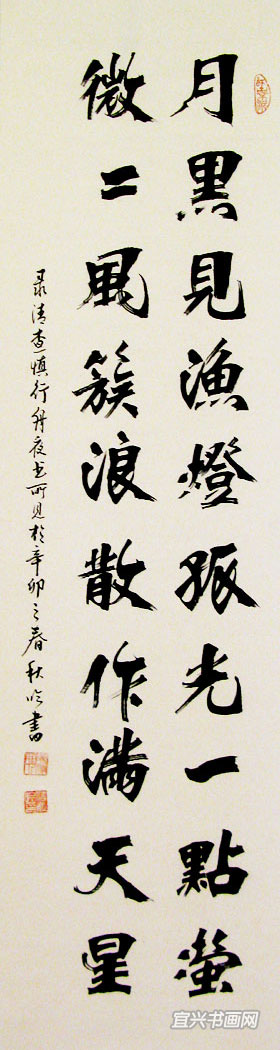 月黑見漁燈孤光一點螢
微二風簇浪散作滿天星
录清查慎行舟夜书所见於辛卯之春秋吟書
宜兴书画网